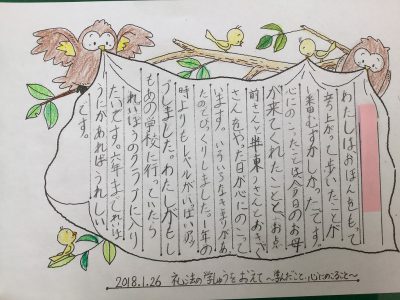 わたしはおぼんをもって
立ち上がって歩いたことが
一番むずかしかったです。
心にのこったことは今日のお母
さんが来てくれたことと、お点
前さんと半東さんとお
さんをやった日が心にのこって
います。いろいろなきまりがあ
ったのでびっくりしました。1年の
時よりもレベルがいっぱい上
がりました。わたしがも
しもあの学校に行っていたら
れいほうのクラブに入り
たいです。六年まで
うにがあればうれしい
です。
2018.1.26 礼法の学しゅうをおえて 〜学んだこと・心にのこること〜